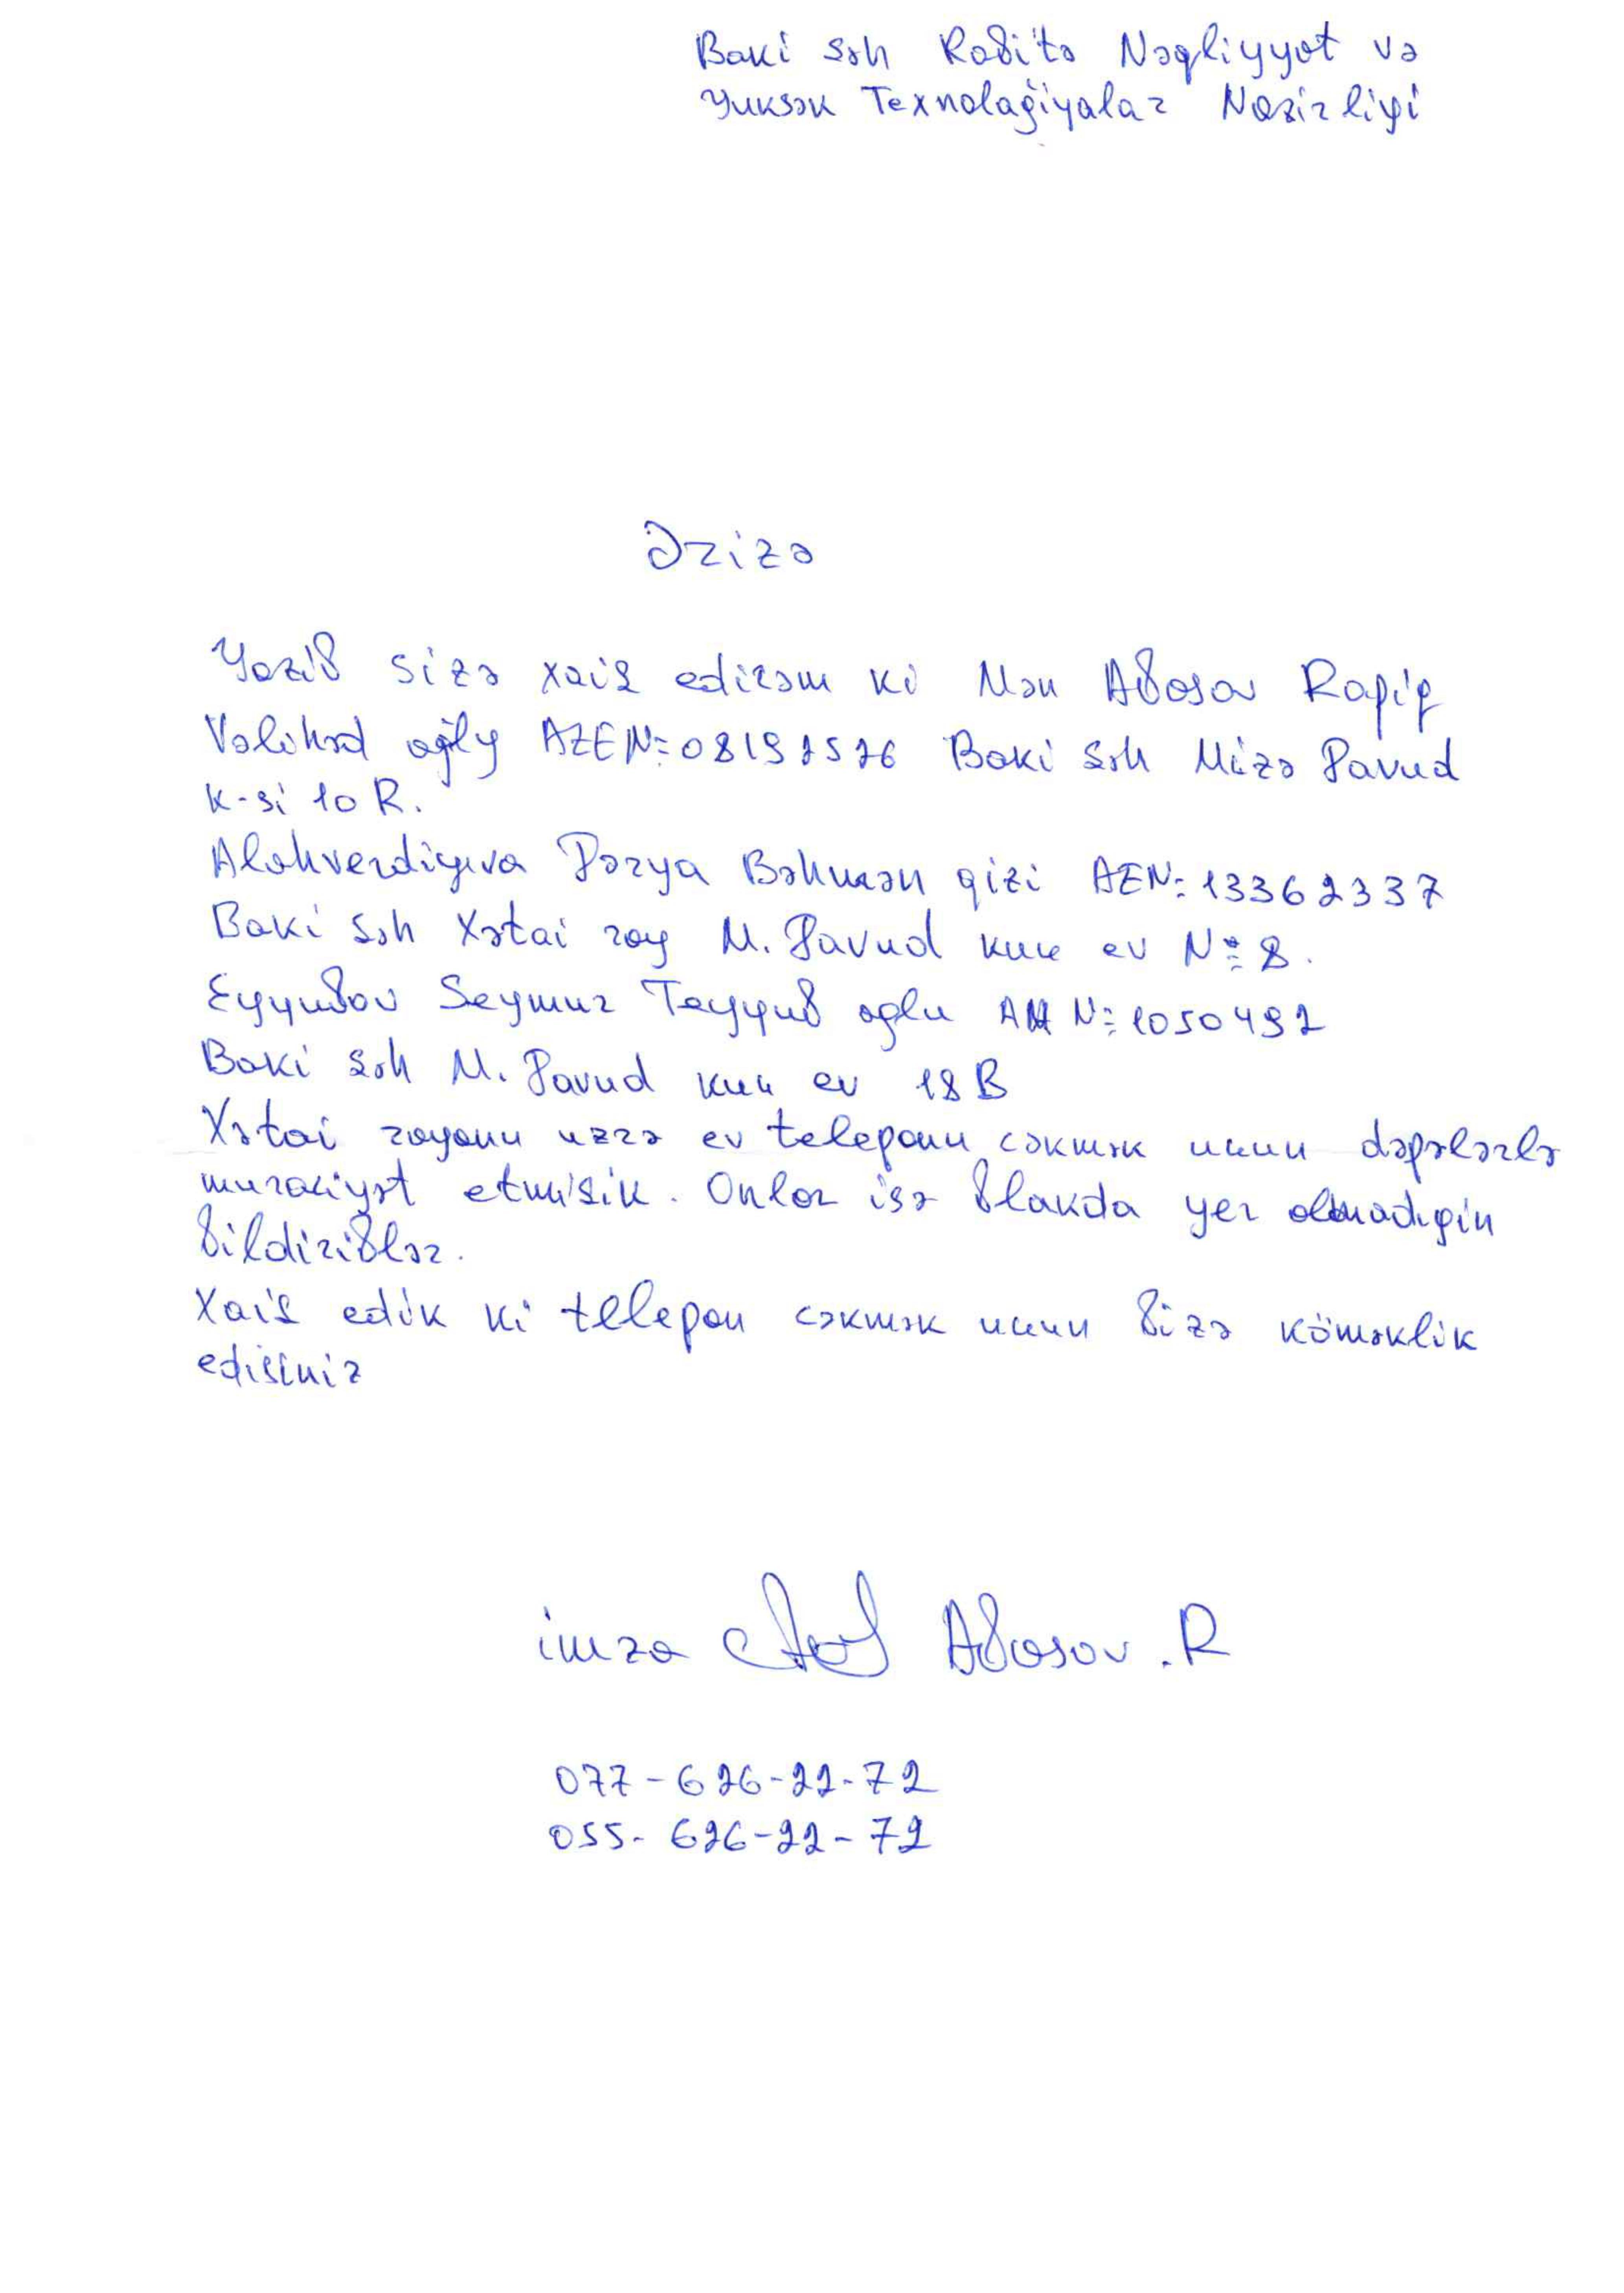 Baki şəh Rabitə Nəqliyyat və
Yuksək Texnolağiyalar Nazirliyi
Ərizə
Yazib sizə xaiş edirəm ki Mən Abasov Rafiq
Vəlihəd oğly AZE №08192526 Baki şəh Mizə Davud
k-si 10 R.
Alahverdiyeva Dərya Bəhmən qizi AEN: 13362337
Baki şəh Xətai ray M. Davud kuc ev № 8.
Eyyubov Seymur Tayyub oglu AA №: 1050492
Baki şəh M. Davud kuc ev 18 B
Xətai rayonu uzrə ev telefonu cəkmək ucun dəfələrlə
muraciyət etmişik. Onlar isə blakda yer olmadıgin
bildiriblər.
Xaiş edik ki telefon cəkmək ucun bizə köməklik
edisiniz
imza Abasov. R
077-626-22-72
055-626-22-72